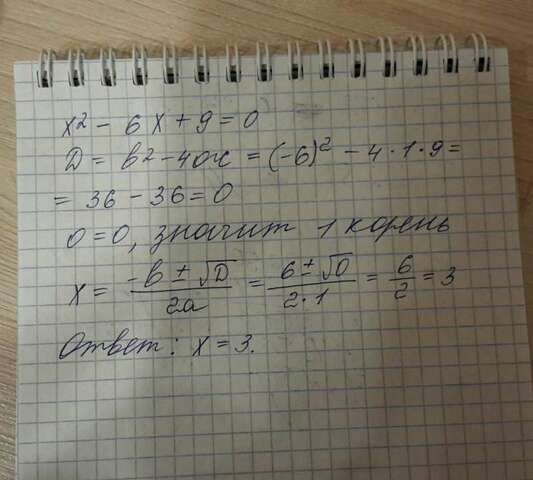 x² - 6x + 9 = 0
D = b² - 4ac = (-6)² - 4·1·9 =
= 36 - 36 = 0
0 = 0, значит 1 корень
x = (-b ± √D)/(2a) = (6 ± √0)/(2·1) = 6/2 = 3
Ответ: x = 3.